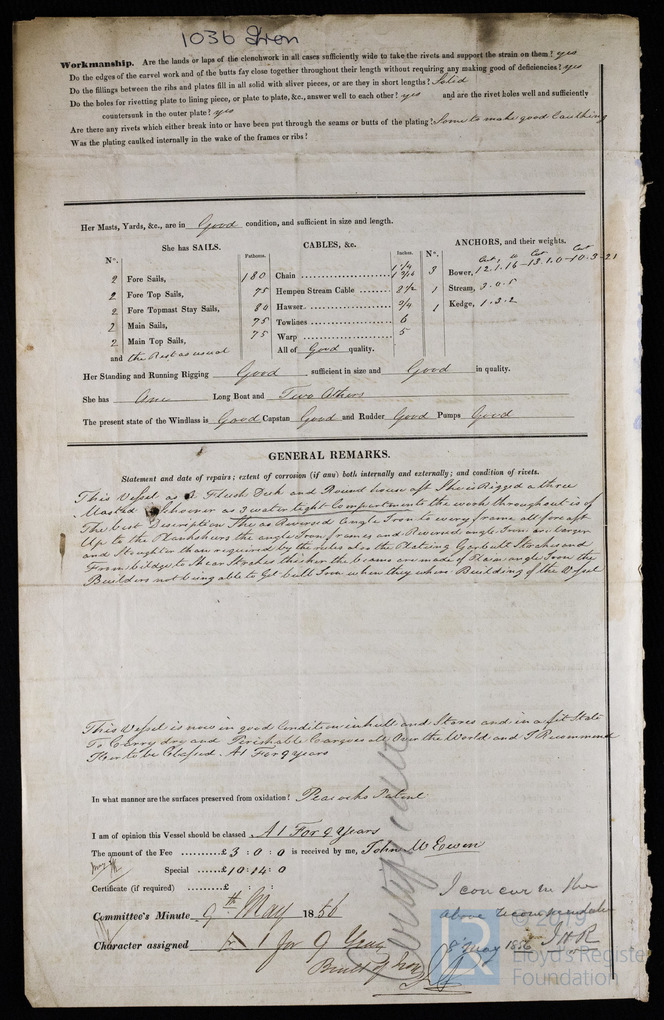 1036 Iron
Workmanship. Are the lands or laps of the clenchwork in all cases sufficiently wide to take the rivets and support the strain on them? yes
Do the edges of the carvel work and of the butts fay close together throughout their length without requiring any making good of deficiencies? yes
Do the fillings between the ribs and plates fill in all solid with sliver pieces, or are they in short lengths? Solid
Do the holes for rivetting plate to lining piece, or plate to plate, &c., answer well to each other? yes and are the rivet holes well and sufficiently
countersunk in the outer plate? yes
Are there any rivets which either break into or have been put through the seams or butts of the plating? Some to make good Caulking
Was the plating caulked internally in the wake of the frames or ribs?
Her Masts, Yards, &c., are in Good condition, and sufficient in size and length.
She has SAILS. CABLES, &c. ANCHORS, and their weights.
Nº. Fathoms. Inches. Nº.
2 Fore Sails, 180 Chain 3 Bower, 12.1.16 - 13.1.0 - 10.3.21
2 Fore Top Sails, 75 Hempen Stream Cable 8½ 1 Stream, 3.0.5
2 Fore Topmast Stay Sails, 80 Hawser 1 Kedge, 1.3.2
2 Main Sails, 75 Towlines 6
2 Main Top Sails, 75 Warp 5
and the Rest as usual All of Good quality.
Her Standing and Running Rigging Good sufficient in size and Good in quality.
She has One Long Boat and Two Others
The present state of the Windlass is Good Capstan Good and Rudder Good Pumps Good
GENERAL REMARKS.
Statement and date of repairs; extent of corrosion (if any) both internally and externally; and condition of rivets.
This Vessel as a Flush Deck and Round house aft She is Rigged a three
Masted Schooner as 3 water tight Compartments the work throughout is of
The best Description She as Reversed Angle Iron to every frame all fore aft
Up to the Planksheers the angle Iron frames and Reversed angle Iron are larger
and Stronger than required by the rules also the Plateing Garbutt Strakes and
From bildge to Shear Strakes thicker the beams are made of Plain angle Iron the
Builders not being able to Get bulb Iron when they where Building of the Vessel
This Vessel is now in good Condition in hull and Stores and in a fit State
To Carry dry and Perishable Cargoes all Over the World and I Recommend
Her to be Classed A1 For 9 years
In what manner are the surfaces preserved from oxidation? Peacocks Patent
I am of opinion this Vessel should be classed A1 For 9 Years
The amount of the Fee £ 3 : 0 : 0 is received by me, John McEwen
Special £ 10 : 14 : 0
Certificate (if required) £
Certificate
I concur in the
above recommendation
8 May 1856 J H R
Committee's Minute 9th May 1856
Character assigned A 1 for 9 Years
Built of Iron
© 2019
LR
Lloyd's Register
Foundation